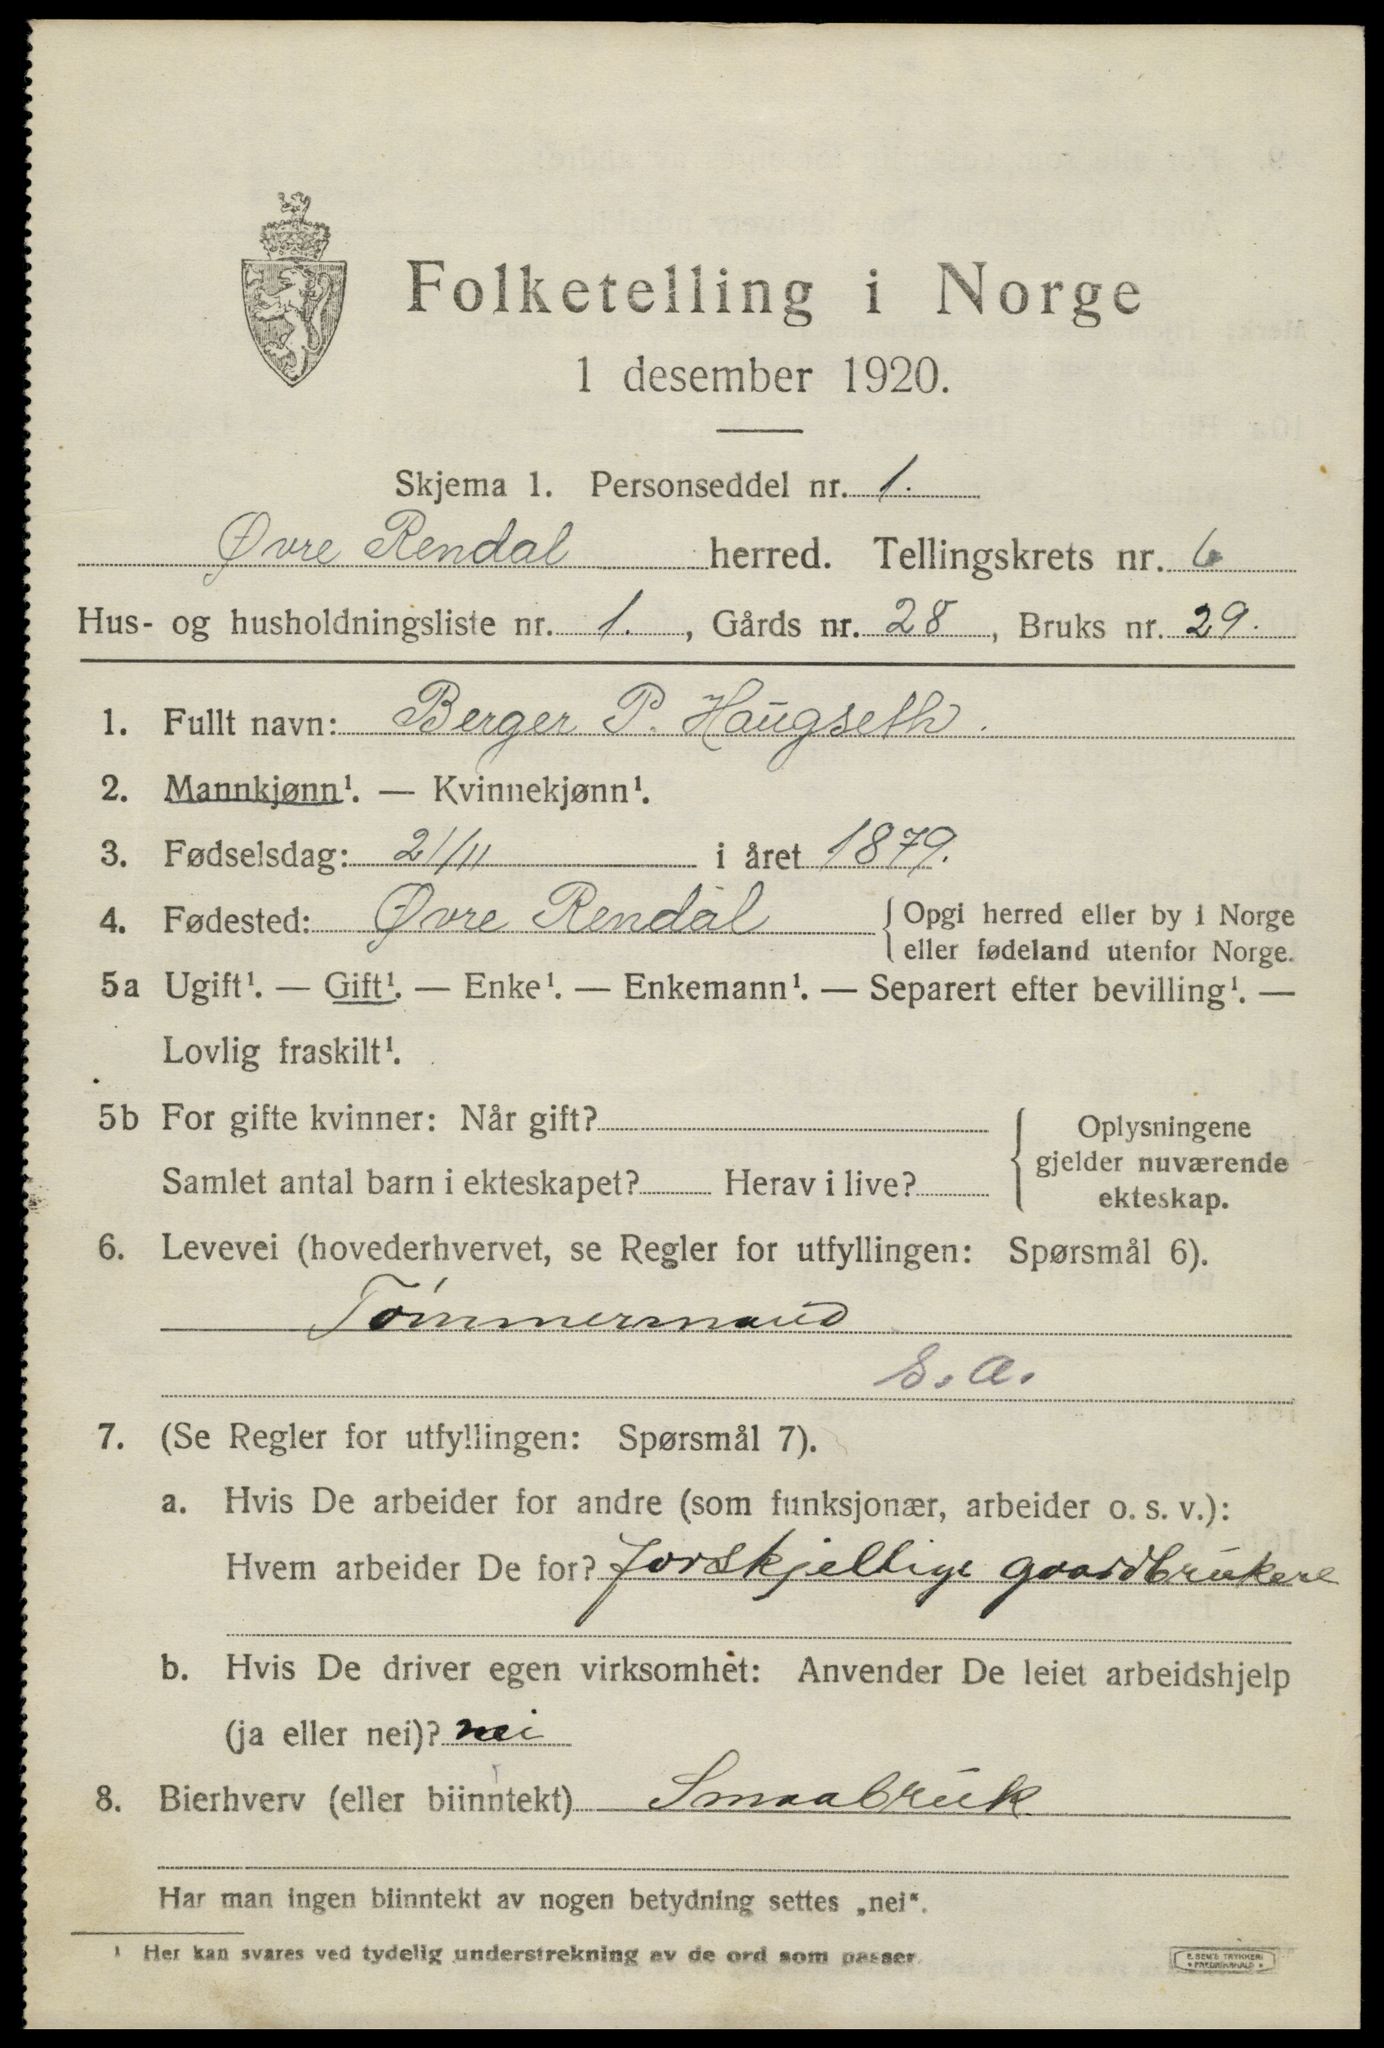 Folketelling i Norge
1 desember 1920.
Skjema 1. Personseddel nr. 1.
Øvre Rendal herred. Tellingskrets nr. 6
Hus- og husholdningsliste nr. 1. , Gårds nr. 28 , Bruks nr. 29.
1. Fullt navn: Berger P. Haugseth.
2. Mannkjønn¹. — Kvinnekjønn¹.
3. Fødselsdag: 21/11 i året 1879.
4. Fødested: Øvre Rendal { Opgi herred eller by i Norge
eller fødeland utenfor Norge.
5a Ugift¹. — Gift¹. — Enke¹. — Enkemann¹. — Separert efter bevilling¹. —
Lovlig fraskilt¹.
5b For gifte kvinner: Når gift?
Samlet antal barn i ekteskapet? Herav i live?
{ Oplysningene
gjelder nuværende
ekteskap.
6. Levevei (hovederhvervet, se Regler for utfyllingen: Spørsmål 6).
Tømmermand
S. a.
7. (Se Regler for utfyllingen: Spørsmål 7).
a. Hvis De arbeider for andre (som funksjonær, arbeider o. s. v.):
Hvem arbeider De for? forskjellige gaardbrukere
b. Hvis De driver egen virksomhet: Anvender De leiet arbeidshjelp
(ja eller nei)? nei
8. Bierhverv (eller biinntekt) Smaabruk
Har man ingen biinntekt av nogen betydning settes „nei“.
¹ Her kan svares ved tydelig understrekning av de ord som passer.
E. SEM'S TRYKKERI
FREDRIKSHALD